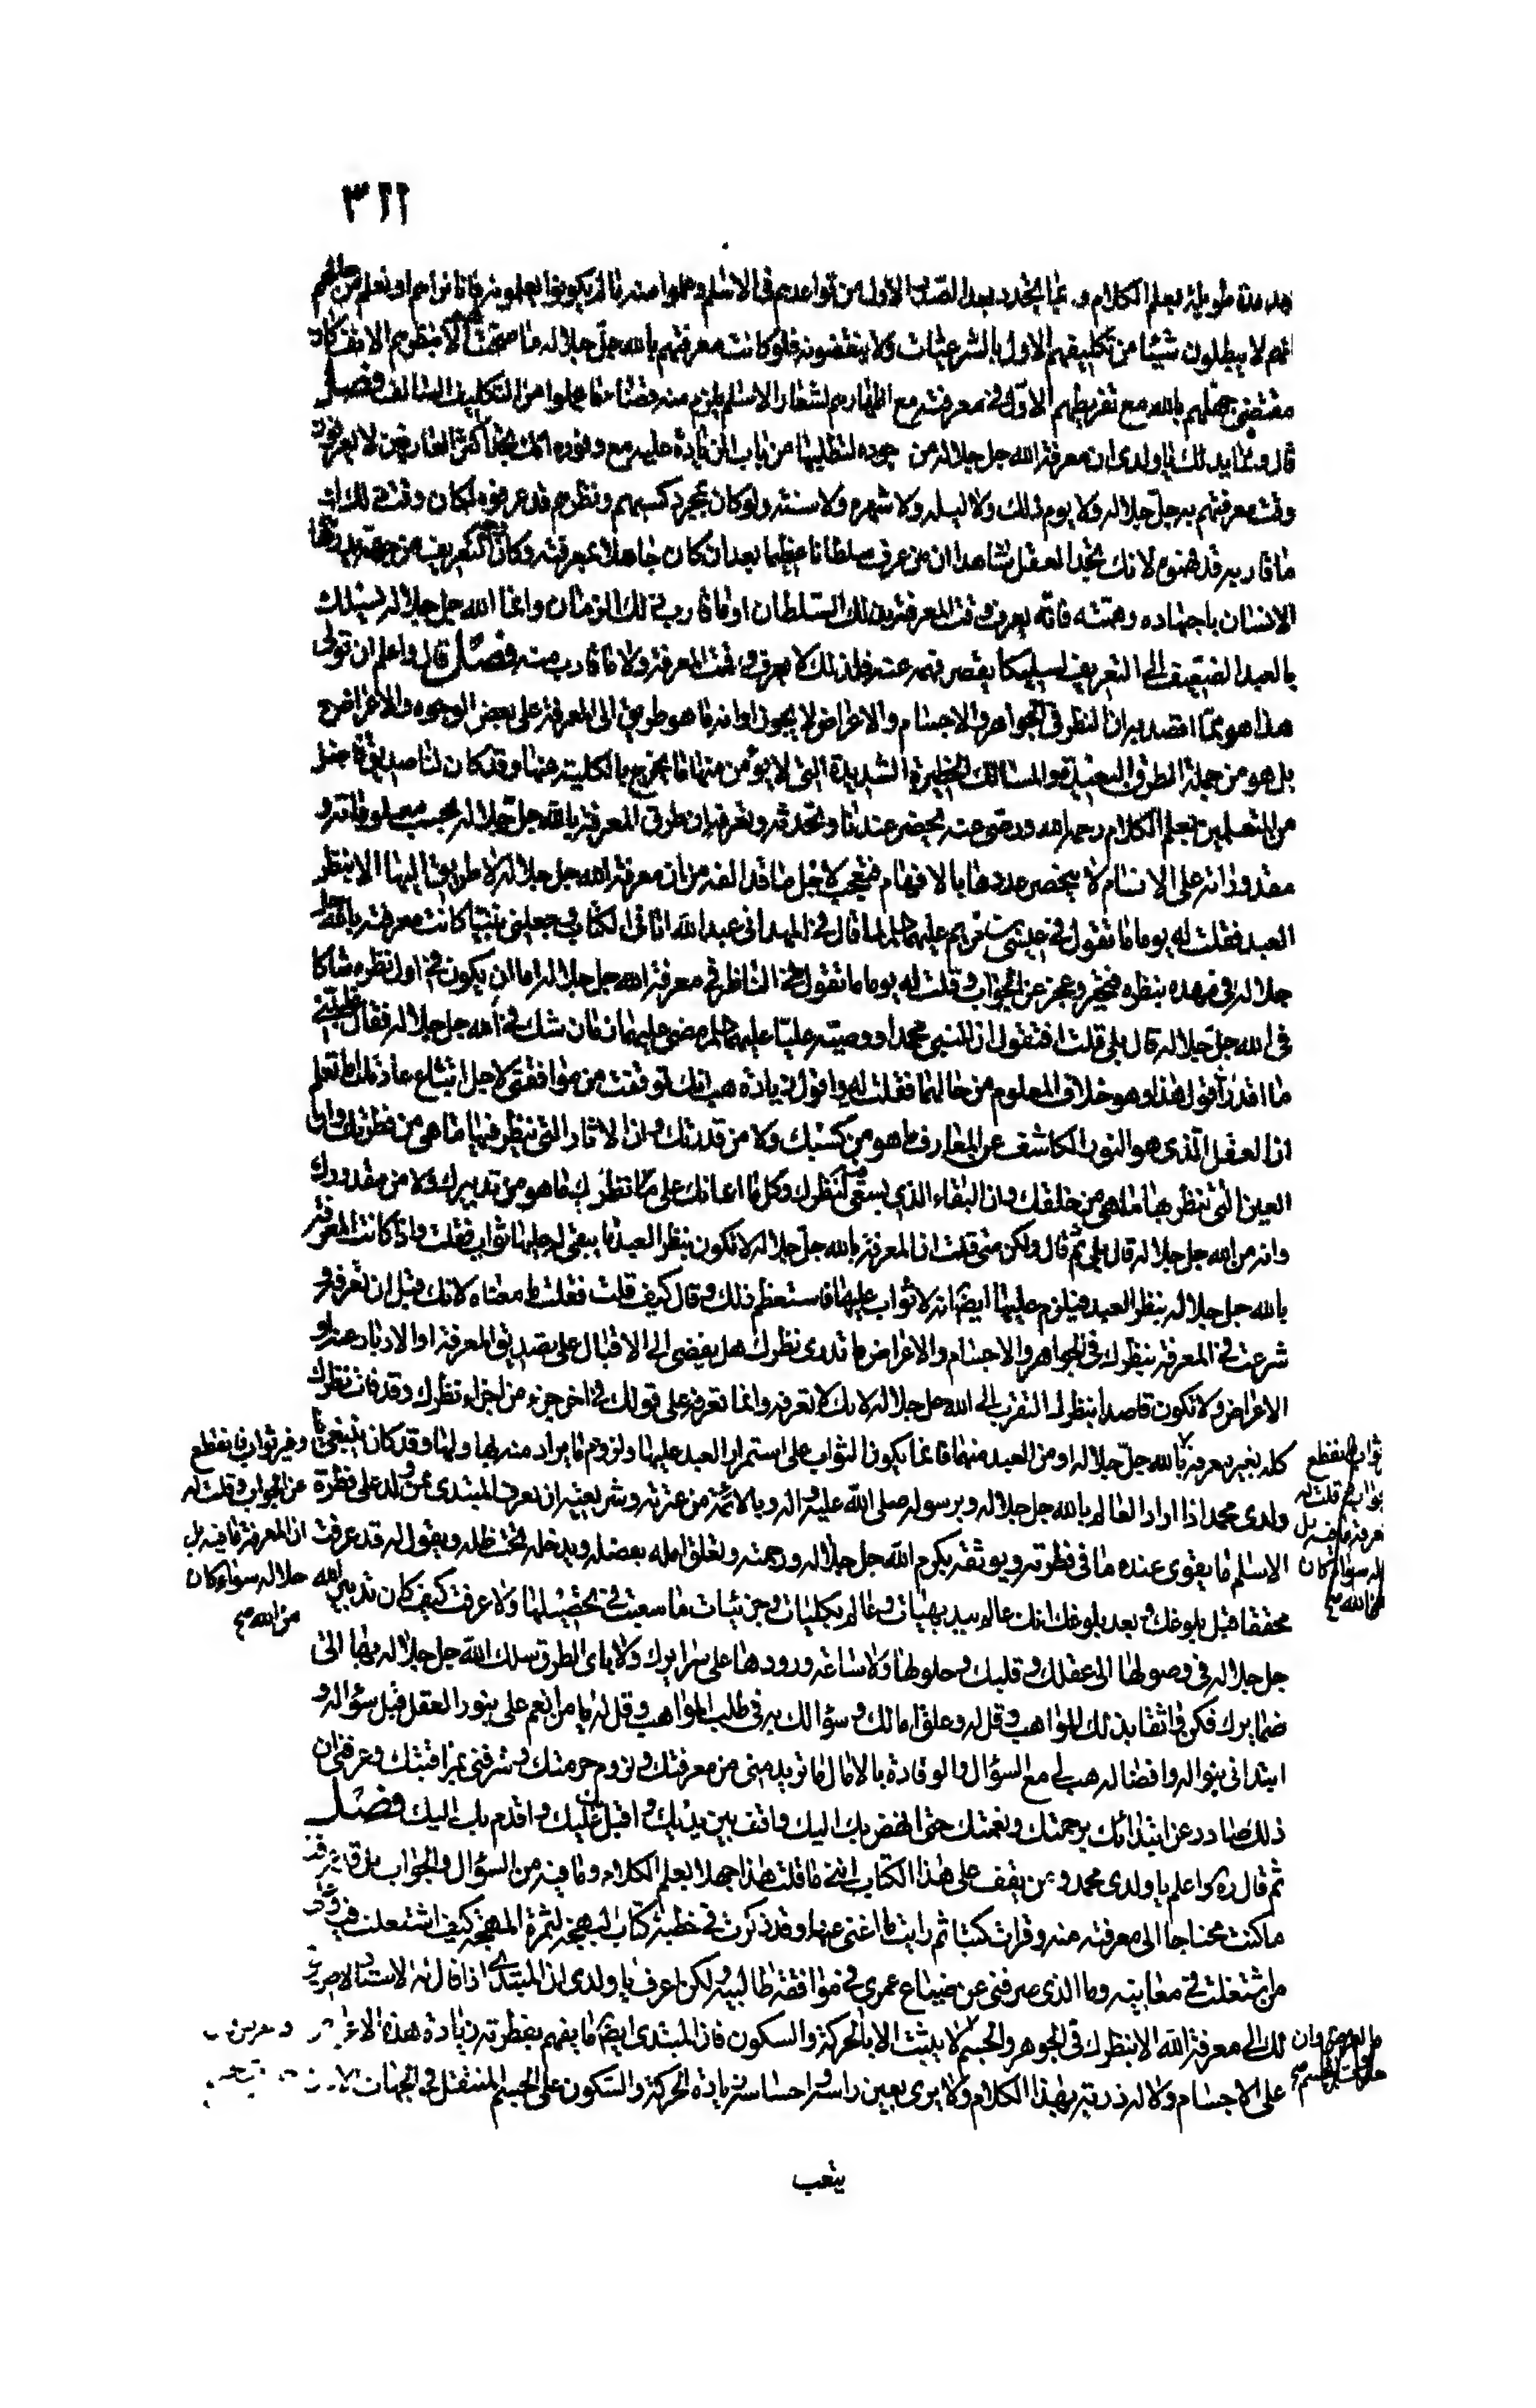 ٣٢٢
هذه مدة طويلة بعلم الكلام وما تجدد بعد الصدر الأول من قواعدهم في الاسلام وعملوا منه ما لم يكونوا يعلمونه فاننا نراهم او نعلم من حالهم
انهم لا يبطلون شيئا من تكليفهم الاول بالشرعيات ولا ينقضونه فلو كانت معرفتهم بالله جل جلاله ما صحت الا بنظرهم الانف كان
مقتضى جهلهم بالله مع تفريطهم الاول في معرفته مع اظهارهم لشعار الاسلام يلزم منه قضاء ما عملوا من التكليف السالف فصل
قال ومما يدلك يا ولدي ان معرفة الله جل جلاله من جوده لتطلبها من باب الزيادة عليه مع وفوده انك تجد اكثر العارفين لا يعرفون
وقت معرفتهم به جل جلاله ولا يوم ذلك ولا ليله ولا شهره ولا سنته ولو كان بمجرد كسبهم ونظرهم قد عرفوه لكان وقت ذلك او
ما قاربه قد فهموه لانك تجد العقل شاهدا ان من عرف سلطانا عظيما بعد ان كان جاهلا بمعرفته وكان التعريف من جهة يدركها
الانسان باجتهاده وهمته فانه يعرف وقت المعرفة بذلك السلطان او ما قارب ذلك الزمان وانما الله جل جلاله يسلك
بالعبد الضعيف الى التعريف تسليكا يقصر فهمه عنه فلذلك لا يعرف وقت المعرفة ولا ما قارب منه فصل قال واعلم ان قولي
هذا هو مما اقصد به ان النظر في الجواهر والاجسام والاعراض لا يجوز او انه ما هو طريق الى المعرفة على بعض الوجوه والاعراض
بل هو من جملة الطرق البعيدة والمسالك الخطيرة الشديدة التي لا يؤمن منها ما يخرج بالكلية عنها وقد كان لنا صديق فاضل
من المتعلمين بعلم الكلام رحمه الله ورضي عنه يحضر عندنا ونحدثه ونعرفه ان طرق المعرفة بالله جل جلاله بحسب معلوماته و
مقدوراته على الانام لا ينحصر عددها بالافهام فتعجب لاجل ما قد الفه من ان معرفة الله جل جلاله لا طريق اليها الا بنظر
العبد فقلت له يوما ما تقول في عيسى بن مريم عليهما السلم لما قال في المهد اني عبد الله اتاني الكتاب وجعلني نبيا كانت معرفته بالله جل
جلاله في مهده بنظره فتحير وعجز عن الجواب وقلت له يوما ما تقول في الناظر في معرفة الله جل جلاله اما ان يكون في اول نظره شاكا
في الله جل جلاله قال بلى قلت افتقول ان النبي محمدا ووصيه عليا عليهما السلم مضى عليهما زمان شك في الله جل جلاله فقال غلبتني
ما اقدر اقول هذا وهو خلاف المعلوم من حالهما فقلت له واقول زيادة هب انك توقفت من موافقتي لاجل اتباع عادتك اما تعلم
ان العقل الذي هو النور الكاشف عن المعارف ما هو من كسبك ولا من قدرتك وان الاثار التي تنظر فيها ما هي من فطرتك وان
العين التي تنظر بها ما هي من خلقك وان البقاء الذي يسعى لنظرك وكل ما اعانك على نظرك ما هو من تدبيرك ولا من مقدورك
وانه من الله جل جلاله قال بلى ثم قال ولكن متى قلت ان المعرفة بالله جل جلاله لا تكون بنظر العبد ما يبقى له عليها ثواب فقلت واذا كانت المعرفة
بالله جل جلاله بنظر العبد فيلزم عليها ايضا انه لا ثواب عليها فاستعظم ذلك وقال كيف قلت فقلت ما معناه لانك قبل ان تعرفه و
شرعت في المعرفة بنظرك في الجواهر والاجسام والاعراض ما تدري نظرك هل يفضي الى الاقبال على تصديق المعرفة او الادبار عنها و
الاعراض ولا تكون قاصدا بنظرك التقرب الى الله جل جلاله لانك لا تعرفه وانما تعرفه على قولك في اخر جزء من اجزاء نظرك وقد فات نظرك
كله بغير معرفة بالله جل جلاله او من العبد منهما فانما يكون الثواب على استمرار العبد عليها ولزوم ما يراد منه بها ولها وقد كان ينبغي يا
ولدي محمد اذا اراد العالم بالله جل جلاله وبرسوله صلى الله عليه واله وبالائمة من عترته وشريعته ان يعرف المبتدي ممن ولد على فطرة
الاسلم ما يقوى عنده ما في فطرته ويوثقه بكرم الله جل جلاله ورحمته ويعلق امله بفضله ويدخله تحت ظله ويقول له قد عرفت
محققا قبل بلوغك وبعد بلوغك انك عالم ببديهيات وعالم بكليات وجزئيات ما سعيت في تحصيلها ولا عرفت كيف كان تدبير الله
جل جلاله في وصولها الى عقلك وقلبك وحلولها ولا ساعة ورودها على سرايرك ولا باي الطرق سلك الله جل جلاله بها الى
ضمايرك فكن واثقا بذلك المواهب وقل له وعلق امالك وسؤالك به في طلب المواهب وقل له يا من انعم علي بنور العقل قبل سؤاله و
ابتداني بنواله وافضاله هب لي مع السؤال والوفادة بالامال ما تريد مني من معرفتك ولزوم حرمتك وشرفني بمراقبتك وعرفني ان
ذلك صادر عن ابتدائك برحمتك ونعمتك حتى انهض بك اليك واقف بين يديك واقبل بك عليك واقدم بك اليك فصل
ثم قال ره واعلم يا ولدي محمد ومن يقف على هذا الكتاب انني ما قلت هذا جهلا بعلم الكلام وما فيه من السؤال والجواب بل قد عرفت
ما كنت محتاجا الى معرفته منه وقرات كتبا ثم رايت ما اغنى عنها وقد ذكرت في خطبة كتاب البهجة لثمرة المهجة كيف اشتغلت فيه وعلى
من اشتغلت في معانيه وما الذي صرفني عن ضياع عمري في موافقة طالبيه ولكن اعرف يا ولدي ان المبتدي اذا قال له الاستاد لا طريق
لك الى معرفة الله الا بنظرك في الجوهر والجسم لا يثبت الا بالحركة والسكون فان المبتدي ايضا ما يفهم بفطرته زيادة هذه الاعراض
على الاجسام ولا له ذريته بهذا الكلام ولا يرى بعين راسه واحساسه زيادة الحركة والسكون على الجسم المنتقل في الجهات
وخير ثواب فانقطع
عن الجواب وقلت له
ان المعرفة فافيه بل
جلاله سواء كان
من الله صح
يتعب